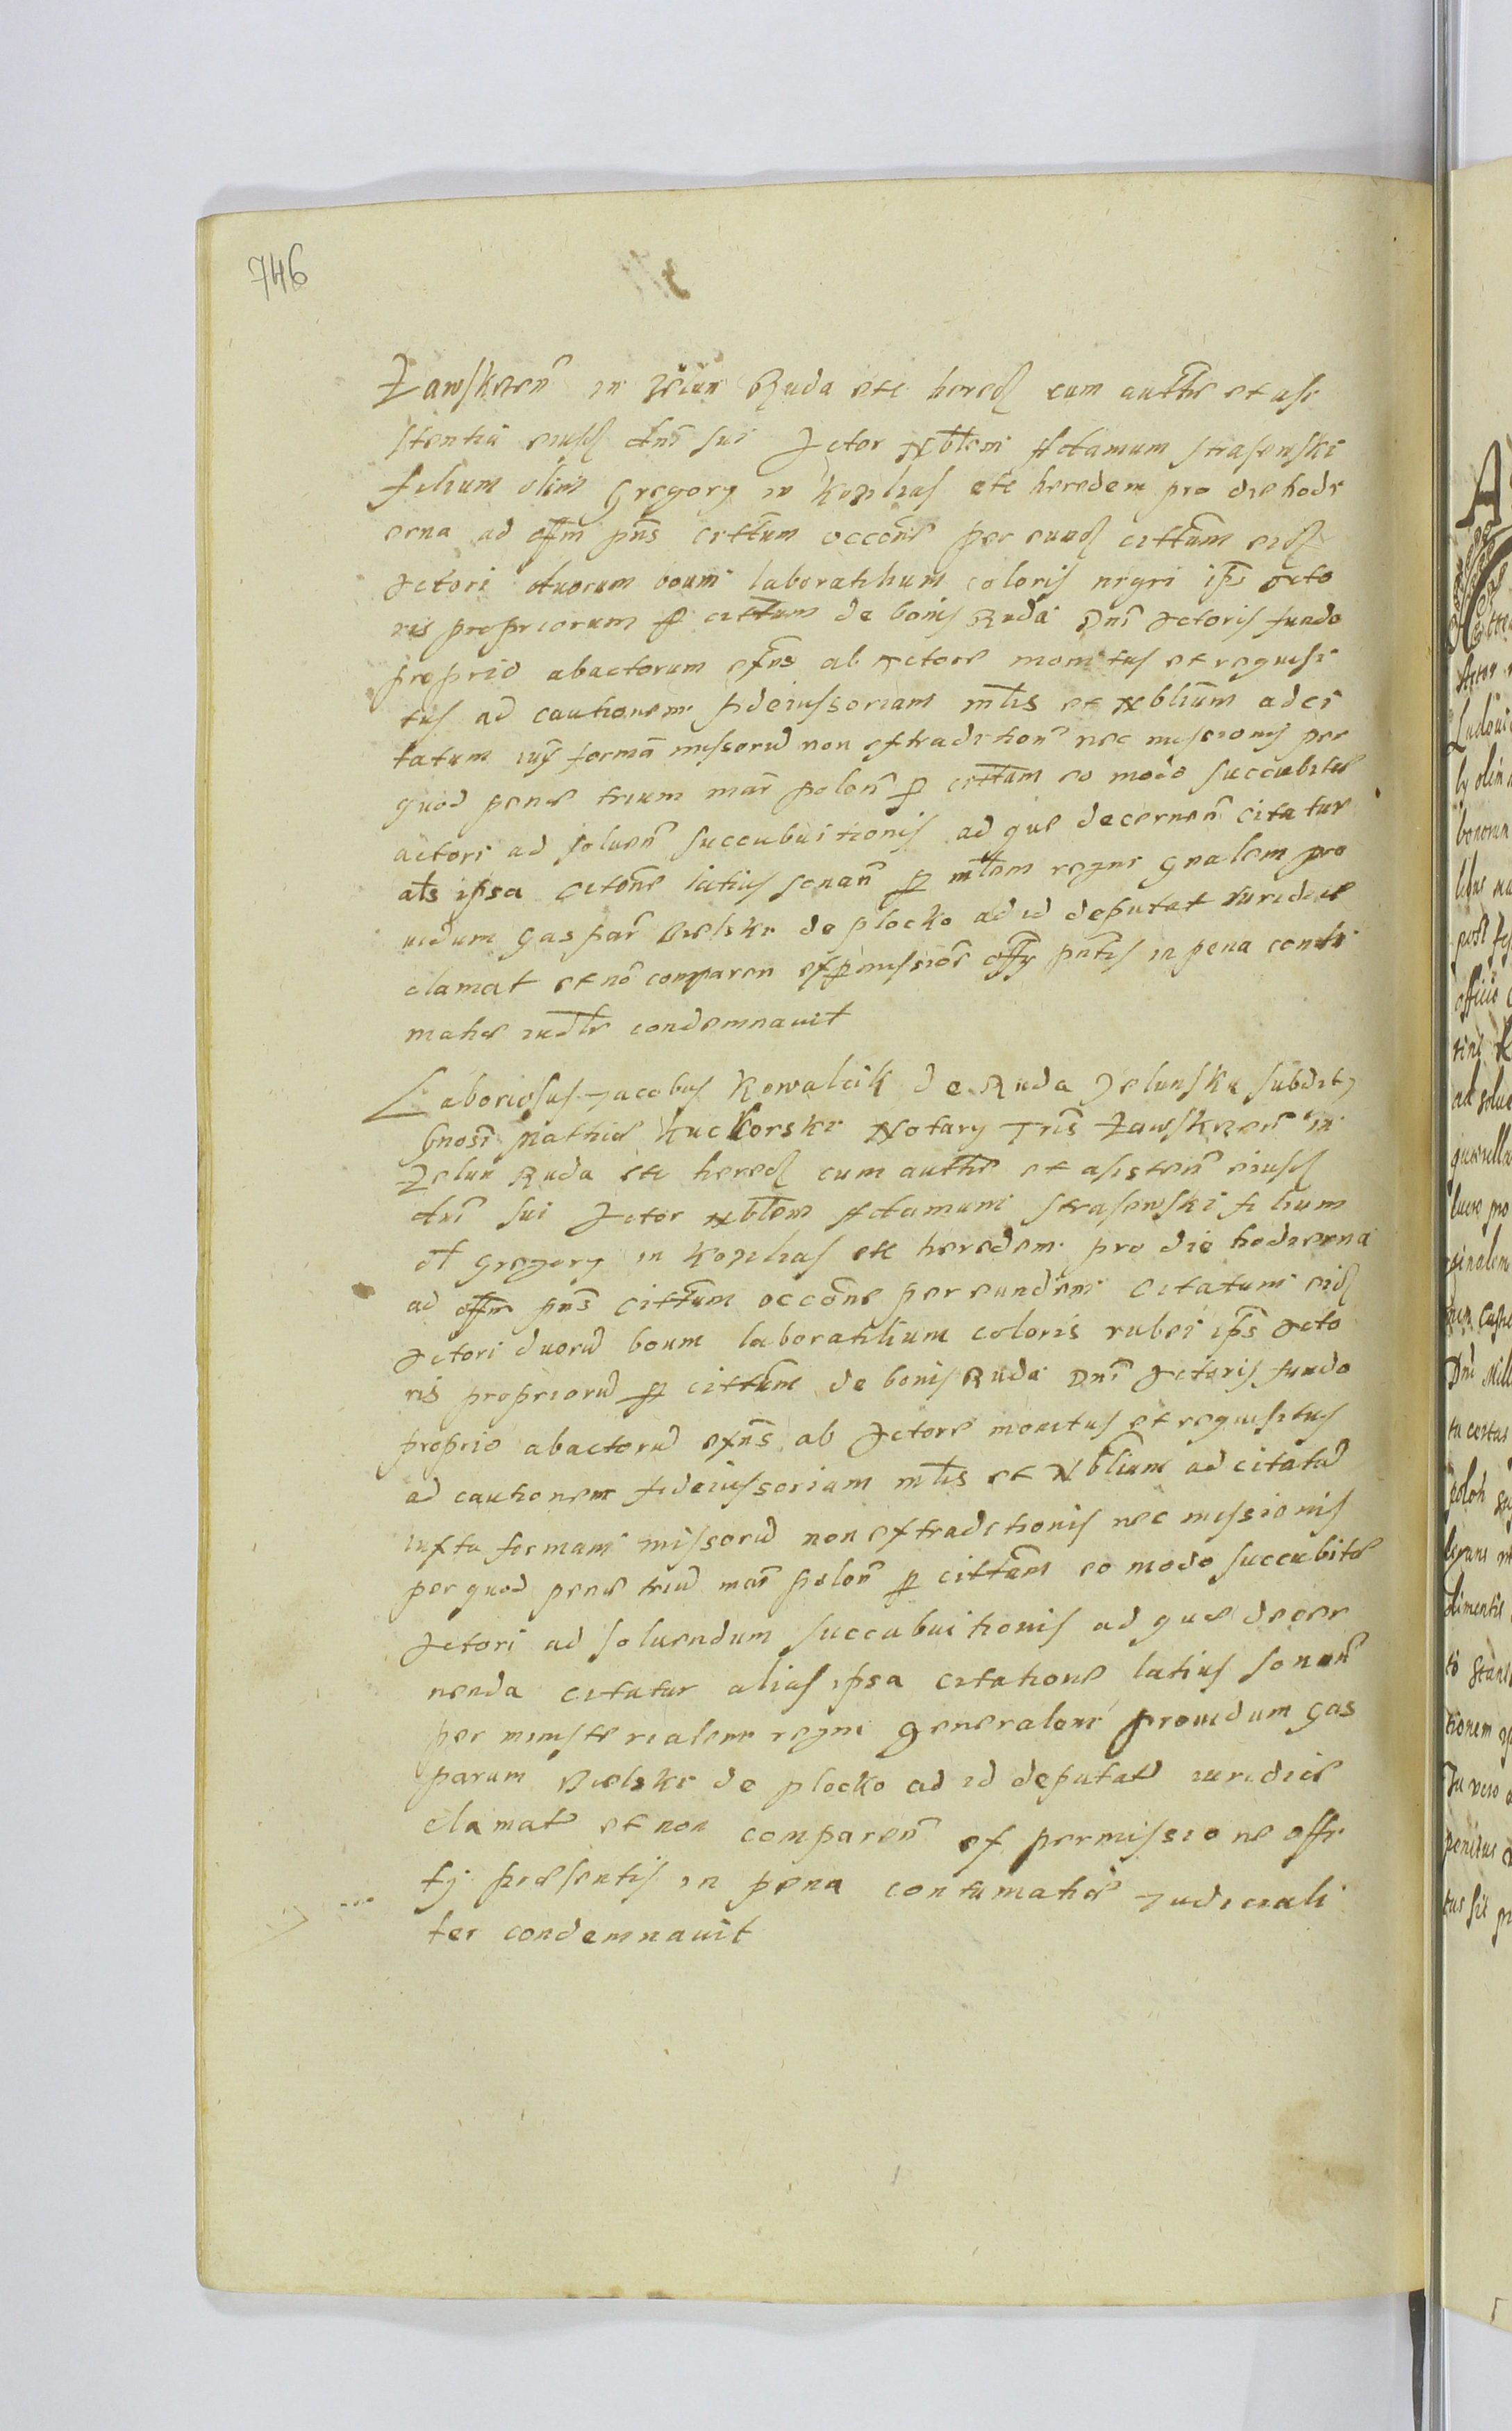 746
Zawskren in Zelun Ruda etc hered cum authe et asi
stentia eiusd dni sui Actor Nblem Adamum Strasewski
filium olim Gregory in Kozilias etc heredem pro die hodi
erna ad offm pns cittum occone per eund cittum eid
Actori duorum boum laboratilium coloris nigri ips Acto
ris propriorum p cittum de bonis Ruda Dni Actoris fundo
proprio abactorum exns ab Actore monitus et requisi
tus ad cautionem fideiussoriam mtis et Nblium ad ci
tatum iux formã missoru non extradition nec missionis per
quod pene trium mar polon p cittum eo modo succubite
actori ad soluen succubuitionis ad que decernen citatur
als ipsa citone latius sonan p mlem regni gnalem pro
uidum Gaspar Bielski de plocko ad id deputat iuridice
clamat et nõ comparen ex pmissioe offy pntis in pena contu
matie iudlr condemnauit
Laboriosus Jacobus Kowalcik de Ruda Zelunska subdit9
Gnosi Mathie Kuckorski Notary Tris Zawskren in
Zelun Ruda etc hered cum authe et asisten eiusd
dni sui Actor Nblem Adamum Strasewski filium
ol Gregory in Kozilias etc heredem pro die hodierna
ad offm pns cittum occone per eundem citatum eid
Actori duoru boum laboratilium coloris rubei ips Acto
ris proprioru p cittum de bonis Ruda Dni Actoris fundo
proprio abactoru exns ab Actore monitus et requisitus
ad cautionem fideiussoriam mtis et Nblium ad citatu
iuxta formam missoru non extraditionis nec missionis
per quod pene triu mar polon p cittum eo modo succubite
Actori ad soluendum succubuitionis ad que decer
nenda citatur alias ipsa citatione latius sonan
per ministerialem regni generalem prouidum Gas
parum Bielski de plocko ad id deputatu iuridice
clamatu et non comparen ex permissione offi
ty præsentis in pena contumatie Judiciali
ter condemnauit